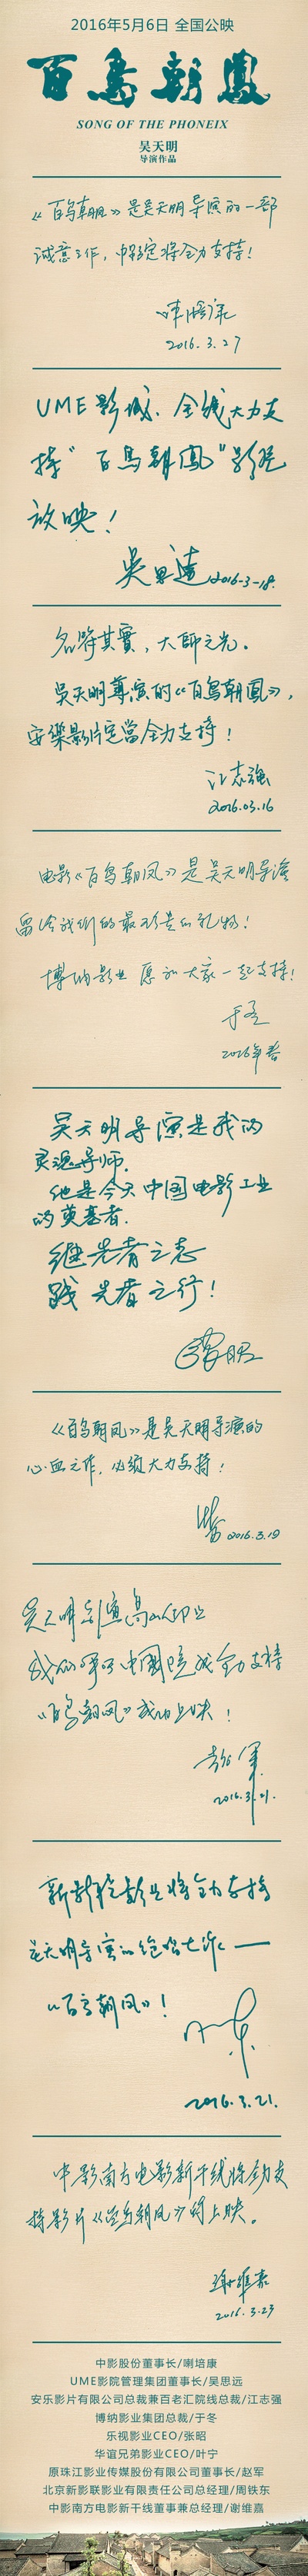 2016年5月6日 全国公映
百鸟朝凤
SONG OF THE PHONEIX
吴天明
导演作品
《百鸟朝凤》是吴天明导演的一部
诚意之作，中影定将全力支持！
2016.3.27
UME影城、全线大力支
持“百鸟朝凤”影片
放映！
吴思远 2016-3-18.
名符其實，大師之光。
吳天明導演的《百鳥朝鳳》，
安樂影片定當全力支持！
江志强
2016.03.16
电影《百鸟朝凤》是吴天明导演
留给我们的最珍贵的礼物！
博纳影业愿和大家一起支持！
于冬
2016年春
吴天明导演是我的
灵魂导师.
他是今天中国电影工业
的奠基者.
继先者之志
践先者之行！
张昭
《百鸟朝凤》是吴天明导演的
心血之作，必须大力支持！
2016.3.19
吴天明导演高山仰止
中国院线全力支持
《百鸟朝凤》成功上映！
赵军
2016.3.21.
新影联影业将全力支持
吴天明导演的绝唱之作——
《百鸟朝凤》！
2016.3.21.
中影南方电影新干线将全力支
持影片《百鸟朝凤》的上映。
谢维嘉
2016.3.23
中影股份董事长/喇培康
UME影院管理集团董事长/吴思远
安乐影片有限公司总裁兼百老汇院线总裁/江志强
博纳影业集团总裁/于冬
乐视影业CEO/张昭
华谊兄弟影业CEO/叶宁
原珠江影业传媒股份有限公司董事长/赵军
北京新影联影业有限责任公司总经理/周铁东
中影南方电影新干线董事兼总经理/谢维嘉